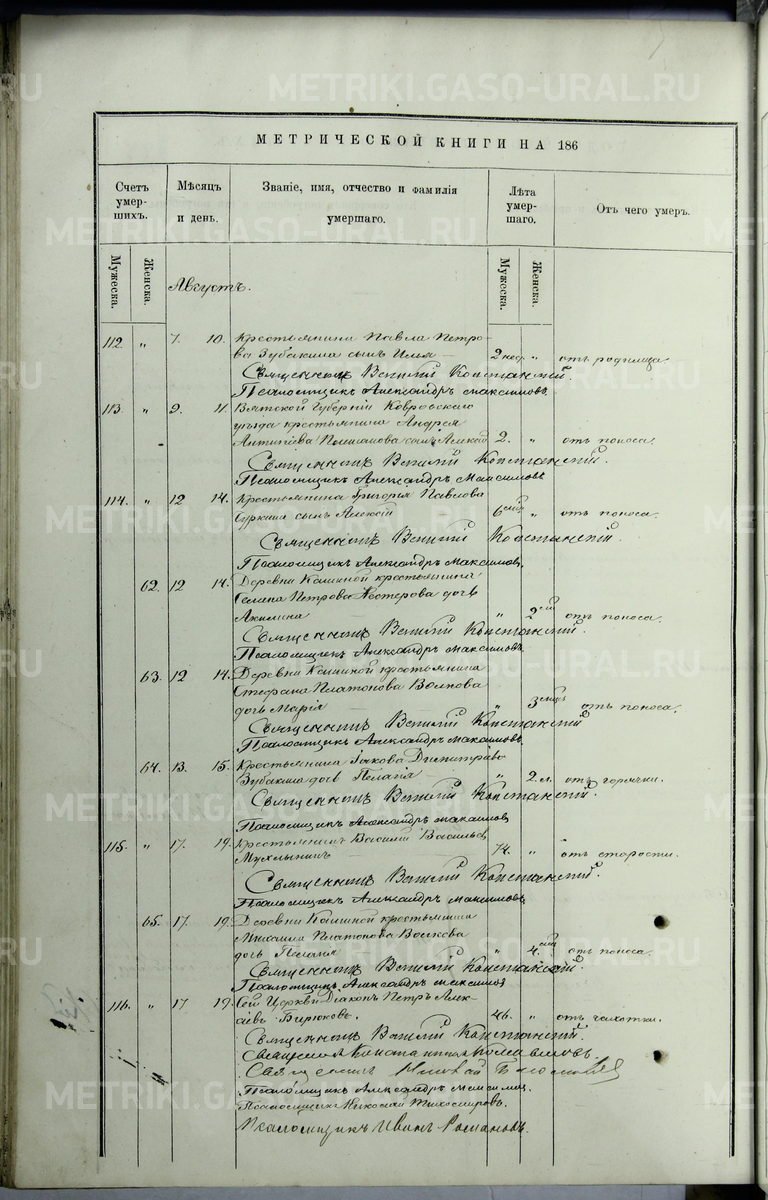 METRIKI.GASO-URAL.RU
МЕТРИЧЕСКОЙ КНИГИ НА 186
Счетъ умер-шихъ.
Мѣсяцъ и день.
Званіе, имя, отчество и фамилія умершаго.
Лѣта умер-шаго.
Отъ чего умеръ.
Мужеска.
Женска.
Мужеска.
Женска.
Августъ.
112 " 7. 10. Крестьянина Павла Петро-
ва Зубакина сынъ Илья — 2 нед. " отъ родимца.
Священникъ Василій
Псаломщикъ Александръ Максимовъ
113. " 9. 11. Вятской Губерніи
уѣзда крестьянина Андрея
2. " отъ поноса.
Священникъ Василій
Псаломщикъ Александръ Максимовъ
114. " 12 14. Крестьянина Григорія Павлова
сынъ Алексій 6 " отъ поноса.
Священникъ Василій
Псаломщикъ Александръ Максимовъ
62. 12 14. Деревни крестьянина
Петрова Нестерова дочь
Акилина — " 2 отъ поноса.
Священникъ Василій
Псаломщикъ Александръ Максимовъ
63. 12 14. Деревни крестьянина
Стефана Платонова Волкова
дочь Марія — " 3 отъ поноса.
Священникъ Василій
Псаломщикъ Александръ Максимовъ
64. 13. 15. Крестьянина Іакова Димитріева
Зубакина дочь Пелагія " 2 л. отъ горячки.
Священникъ Василій
Псаломщикъ Александръ Максимовъ
115. " 17. 19. Крестьянинъ Василій Васильевъ
Мухлынинъ — 74. " отъ старости.
Священникъ Василій
Псаломщикъ Александръ Максимовъ
65. 17. 19. Деревни крестьянина
Михаила Платонова Волкова
дочь Пелагія " 4 отъ поноса.
Священникъ Василій
Псаломщикъ Александръ Максимовъ
116. " 17 19. Сей Церкви Діаконъ Петръ Алек-
сіевъ Бирюковъ. 46. " отъ чахотки.
Священникъ Василій
Священникъ
Священникъ
Псаломщикъ Александръ
Псаломщикъ Николай Тихомировъ.
Псаломщикъ Иванъ Романовъ.